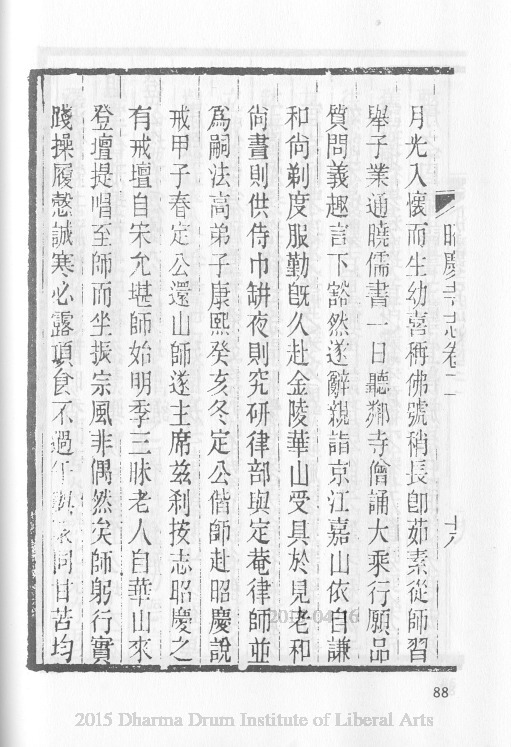 昭慶寺志卷二
十八
月光入懷而生幼喜稱佛號稍長卽茹素從師習
舉子業通曉儒書一日聽鄰寺僧誦大乘行願品
質問義趣言下豁然遂辭親詣京江嘉山依自謙
和尚剃度服勤旣久赴金陵華山受具於見老和
尚晝則供侍巾缾夜則究研律部與定菴律師並
爲嗣法高弟子康熙癸亥冬定公偕師赴昭慶說
戒甲子春定公還山師遂主席兹刹按志昭慶之
有戒壇自宋允堪師始明季三昧老人自華山來
登壇提唱至師而坐振宗風非偶然矣師躬行實
踐操履慤誠寒必露頂食不過午與衆同甘苦均
88
2015 Dharma Drum Institute of Liberal Arts